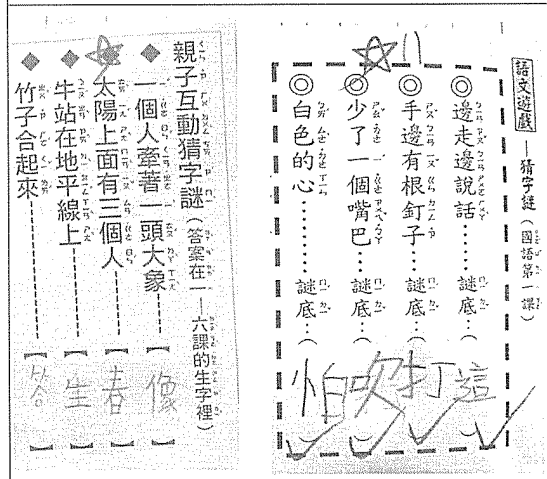 語文遊戲——猜字謎(國語第一課)
◎邊走邊說話⋯⋯謎底:(這)
◎手邊有根釘子⋯⋯謎底:(打)
◎少了一個嘴巴⋯⋯謎底:(吹)
◎白色的心⋯⋯謎底:(怕)
親子互動猜字謎(答案在一—六課的生字裡)
◆一個人牽著一頭大象------【像】
◆太陽上面有三個人------【春】
◆牛站在地平線上------【生】
◆竹子合起來------【答】